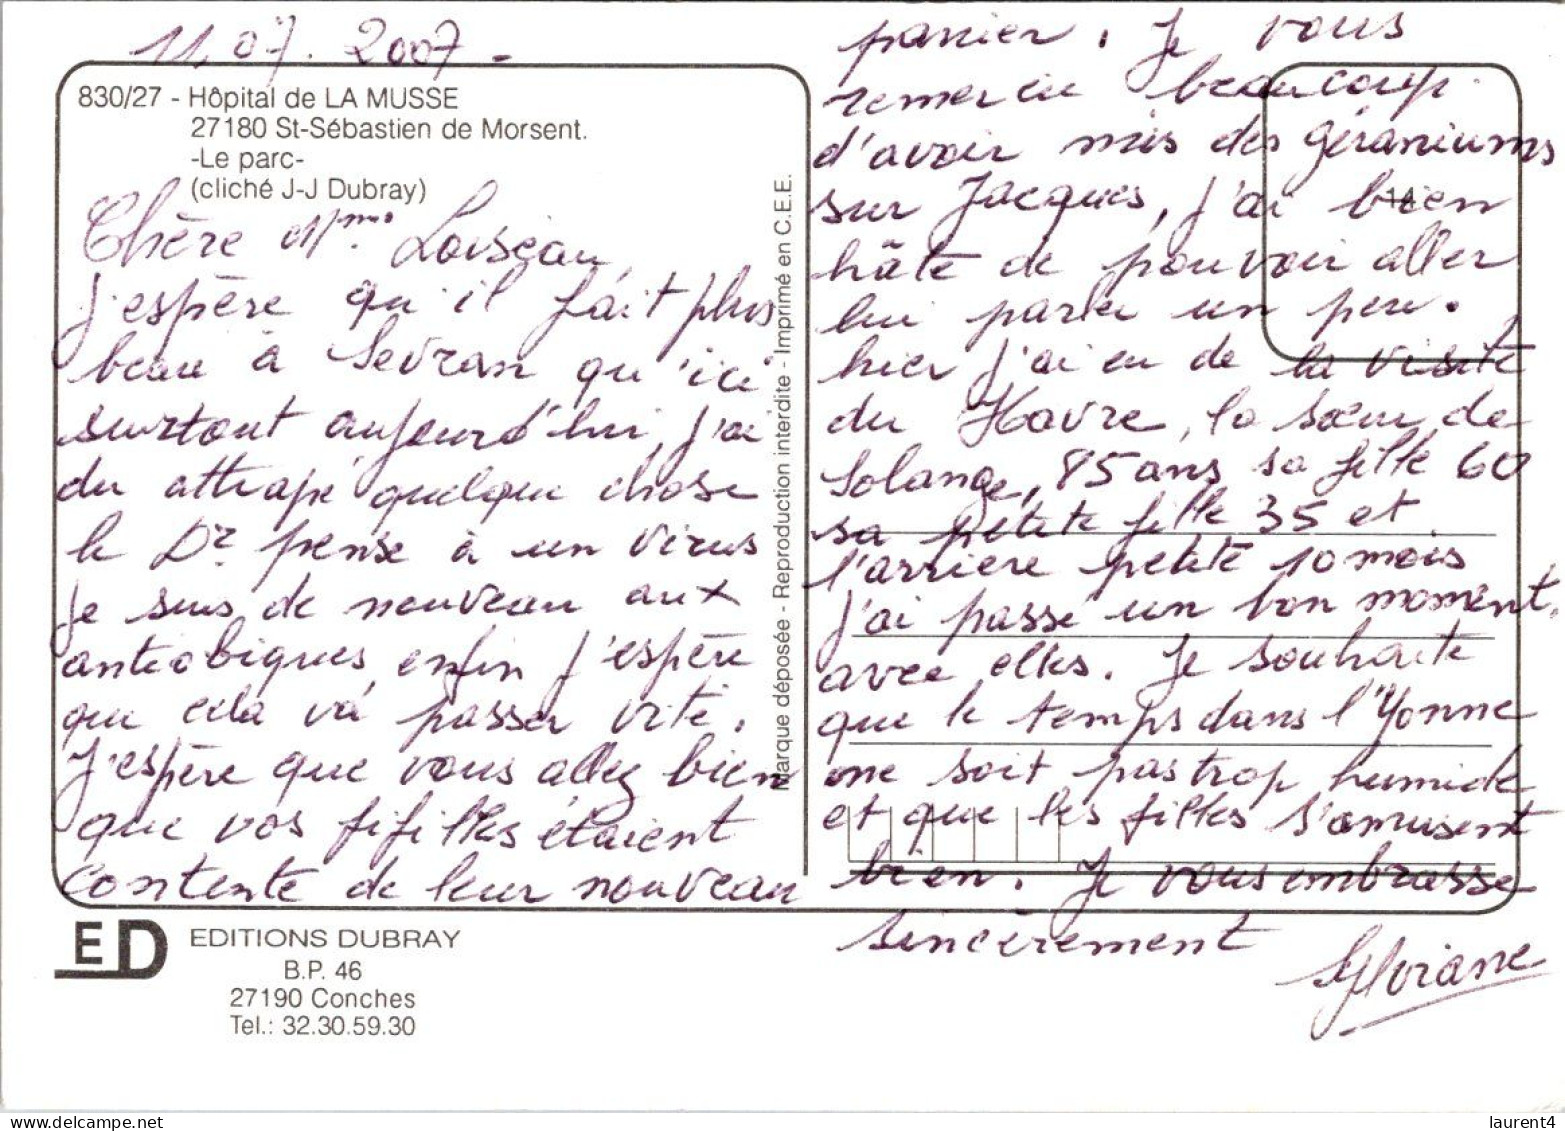 11.07.2007-
830/27 - Hôpital de LA MUSSE
27180 St-Sébastien de Morsent.
-Le parc-
(cliché J-J Dubray)
Chère Mme Loiseau,
j'espère qu'il fait plus
beau à Sevran qu'ici
surtout aujourd'hui, j'ai
du attrapé quelque chose
le Dr pense à un virus
je suis de nouveau aux
antiobiques, enfin j'espère
que cela va passer vite.
J'espère que vous allez bien
que vos fifilles étaient
contente de leur nouveau
Marque déposée - Reproduction interdite - Imprimé en C.E.E.
panier. Je vous
remercie beaucoup
d'avoir mis des géraniums
sur Jacques, j'ai bien
hâte de pouvoir aller
lui parler un peu.
hier j'ai eu de la visite
du Havre, la sœur de
Solange, 85 ans sa fille 60
sa petite fille 35 et
l'arrière petite 10 mois
j'ai passé un bon moment,
avec elles. Je souhaite
que le temps dans l'Yonne
ne soit pas trop humide
et que les filles s'amusent
bien. Je vous embrasse
sincèrement
Sylviane
14
ED
EDITIONS DUBRAY
B.P. 46
27190 Conches
Tel.: 32.30.59.30
laurent4